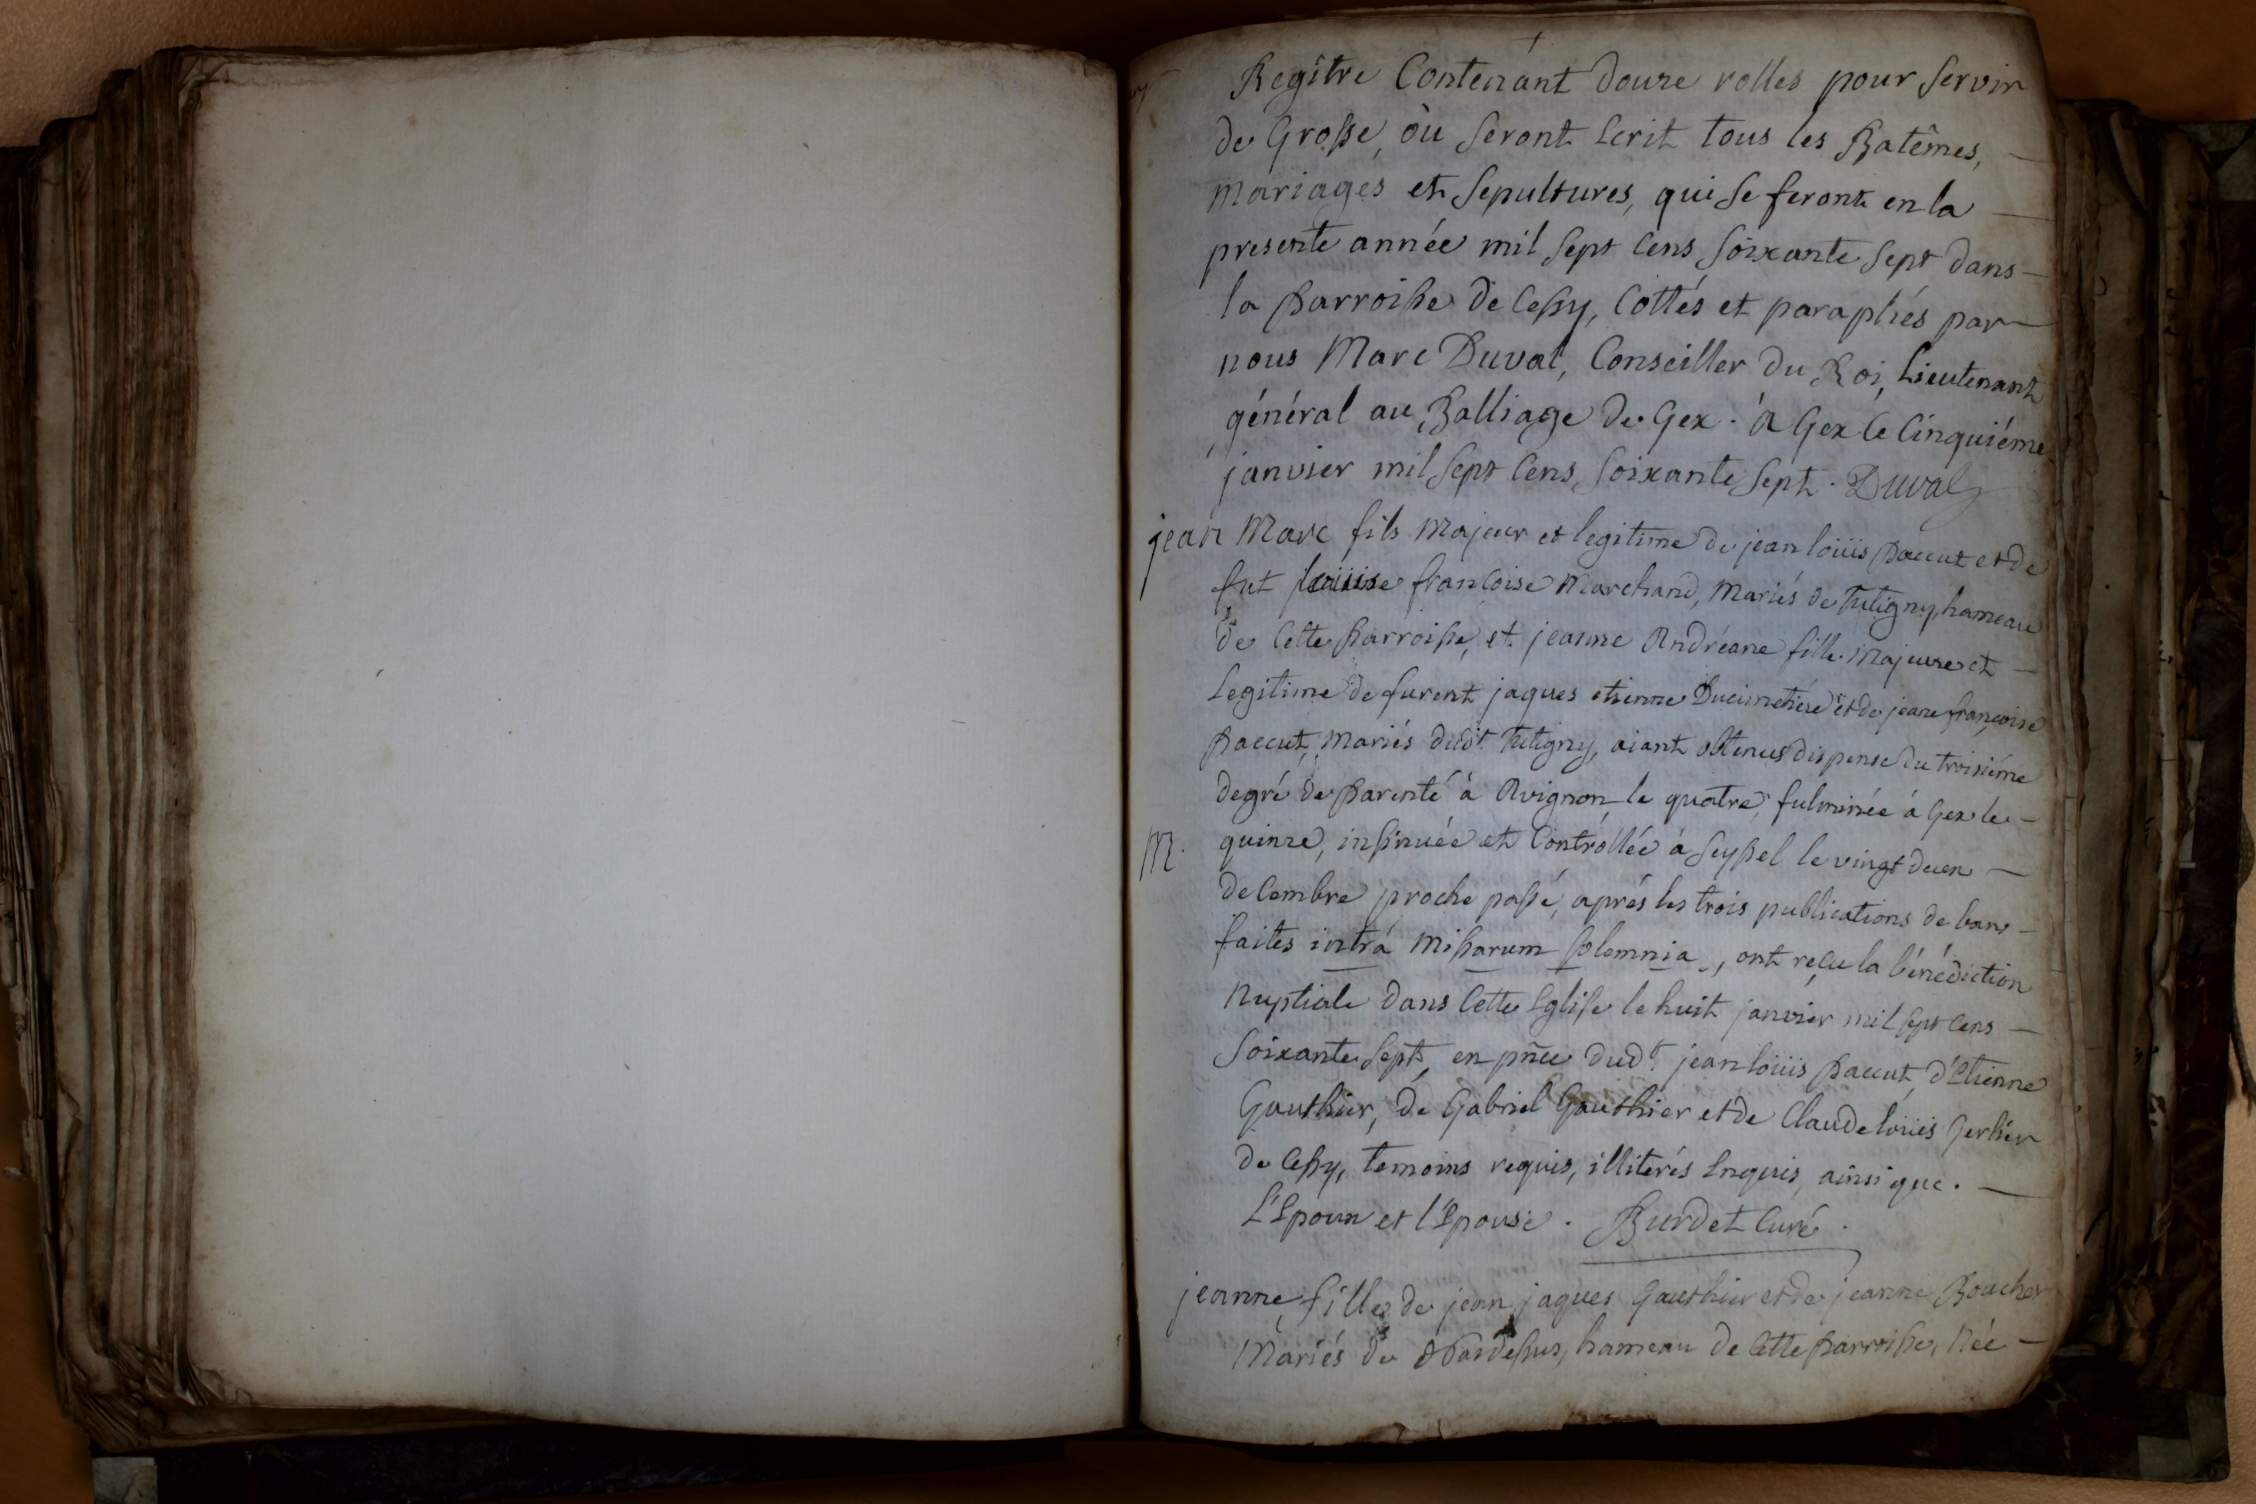 Regître Contenant douze rolles pour servir
de Grosse, où seront Ecrit tous les Batêmes,
mariages et sepultures, qui se feront en la
presente année mil sept cens soixante sept dans
la parroisse de Cessy, Cottés et paraphés par
nous Marc Duval, Conseiller du Roi, Lieutenant
général au Balliage de Gex. à Gex le Cinquiéme
janvier mil sept cens soixante sept. Duval
jean Marc fils majeur et legitime de jean loüis paccut et de
fut loüise françoise Marchand, mariés de Tutigny, hameau
de Cette parroisse, et jeanne Andréane fille majeure et
Legitime de furent jaques etienne Ducimetiére et de jeane françoise
paccut, mariés dudt. Tutigny, aiant obtenus dispense du troisiéme
degré de parenté à Avignon le quatre, fulminée à Gex le
quinze, insinuée et Contróllée à Seyssel le vingt deux
M.
decembre proche passé, aprés les trois publications de bans
faites intrà missarum solemnia, ont reçu la bénédiction
nuptiale dans Cette Eglise le huit janvier mil sept cens
soixante sept, en pñce dudt. jean loüis paccut, d'Etienne
Gauthier, de Gabriel Gauthier et de Claude loüis Gerlier
de Cessy, temoins requis, illiterés Enquis, ainsi que.
L'Epoux et l'Epouse. Burdet Curé.
jeanne, fille de jean jaques Gauthier et de jeanne Boucher
mariés de hameau de Cette parroisse, Née